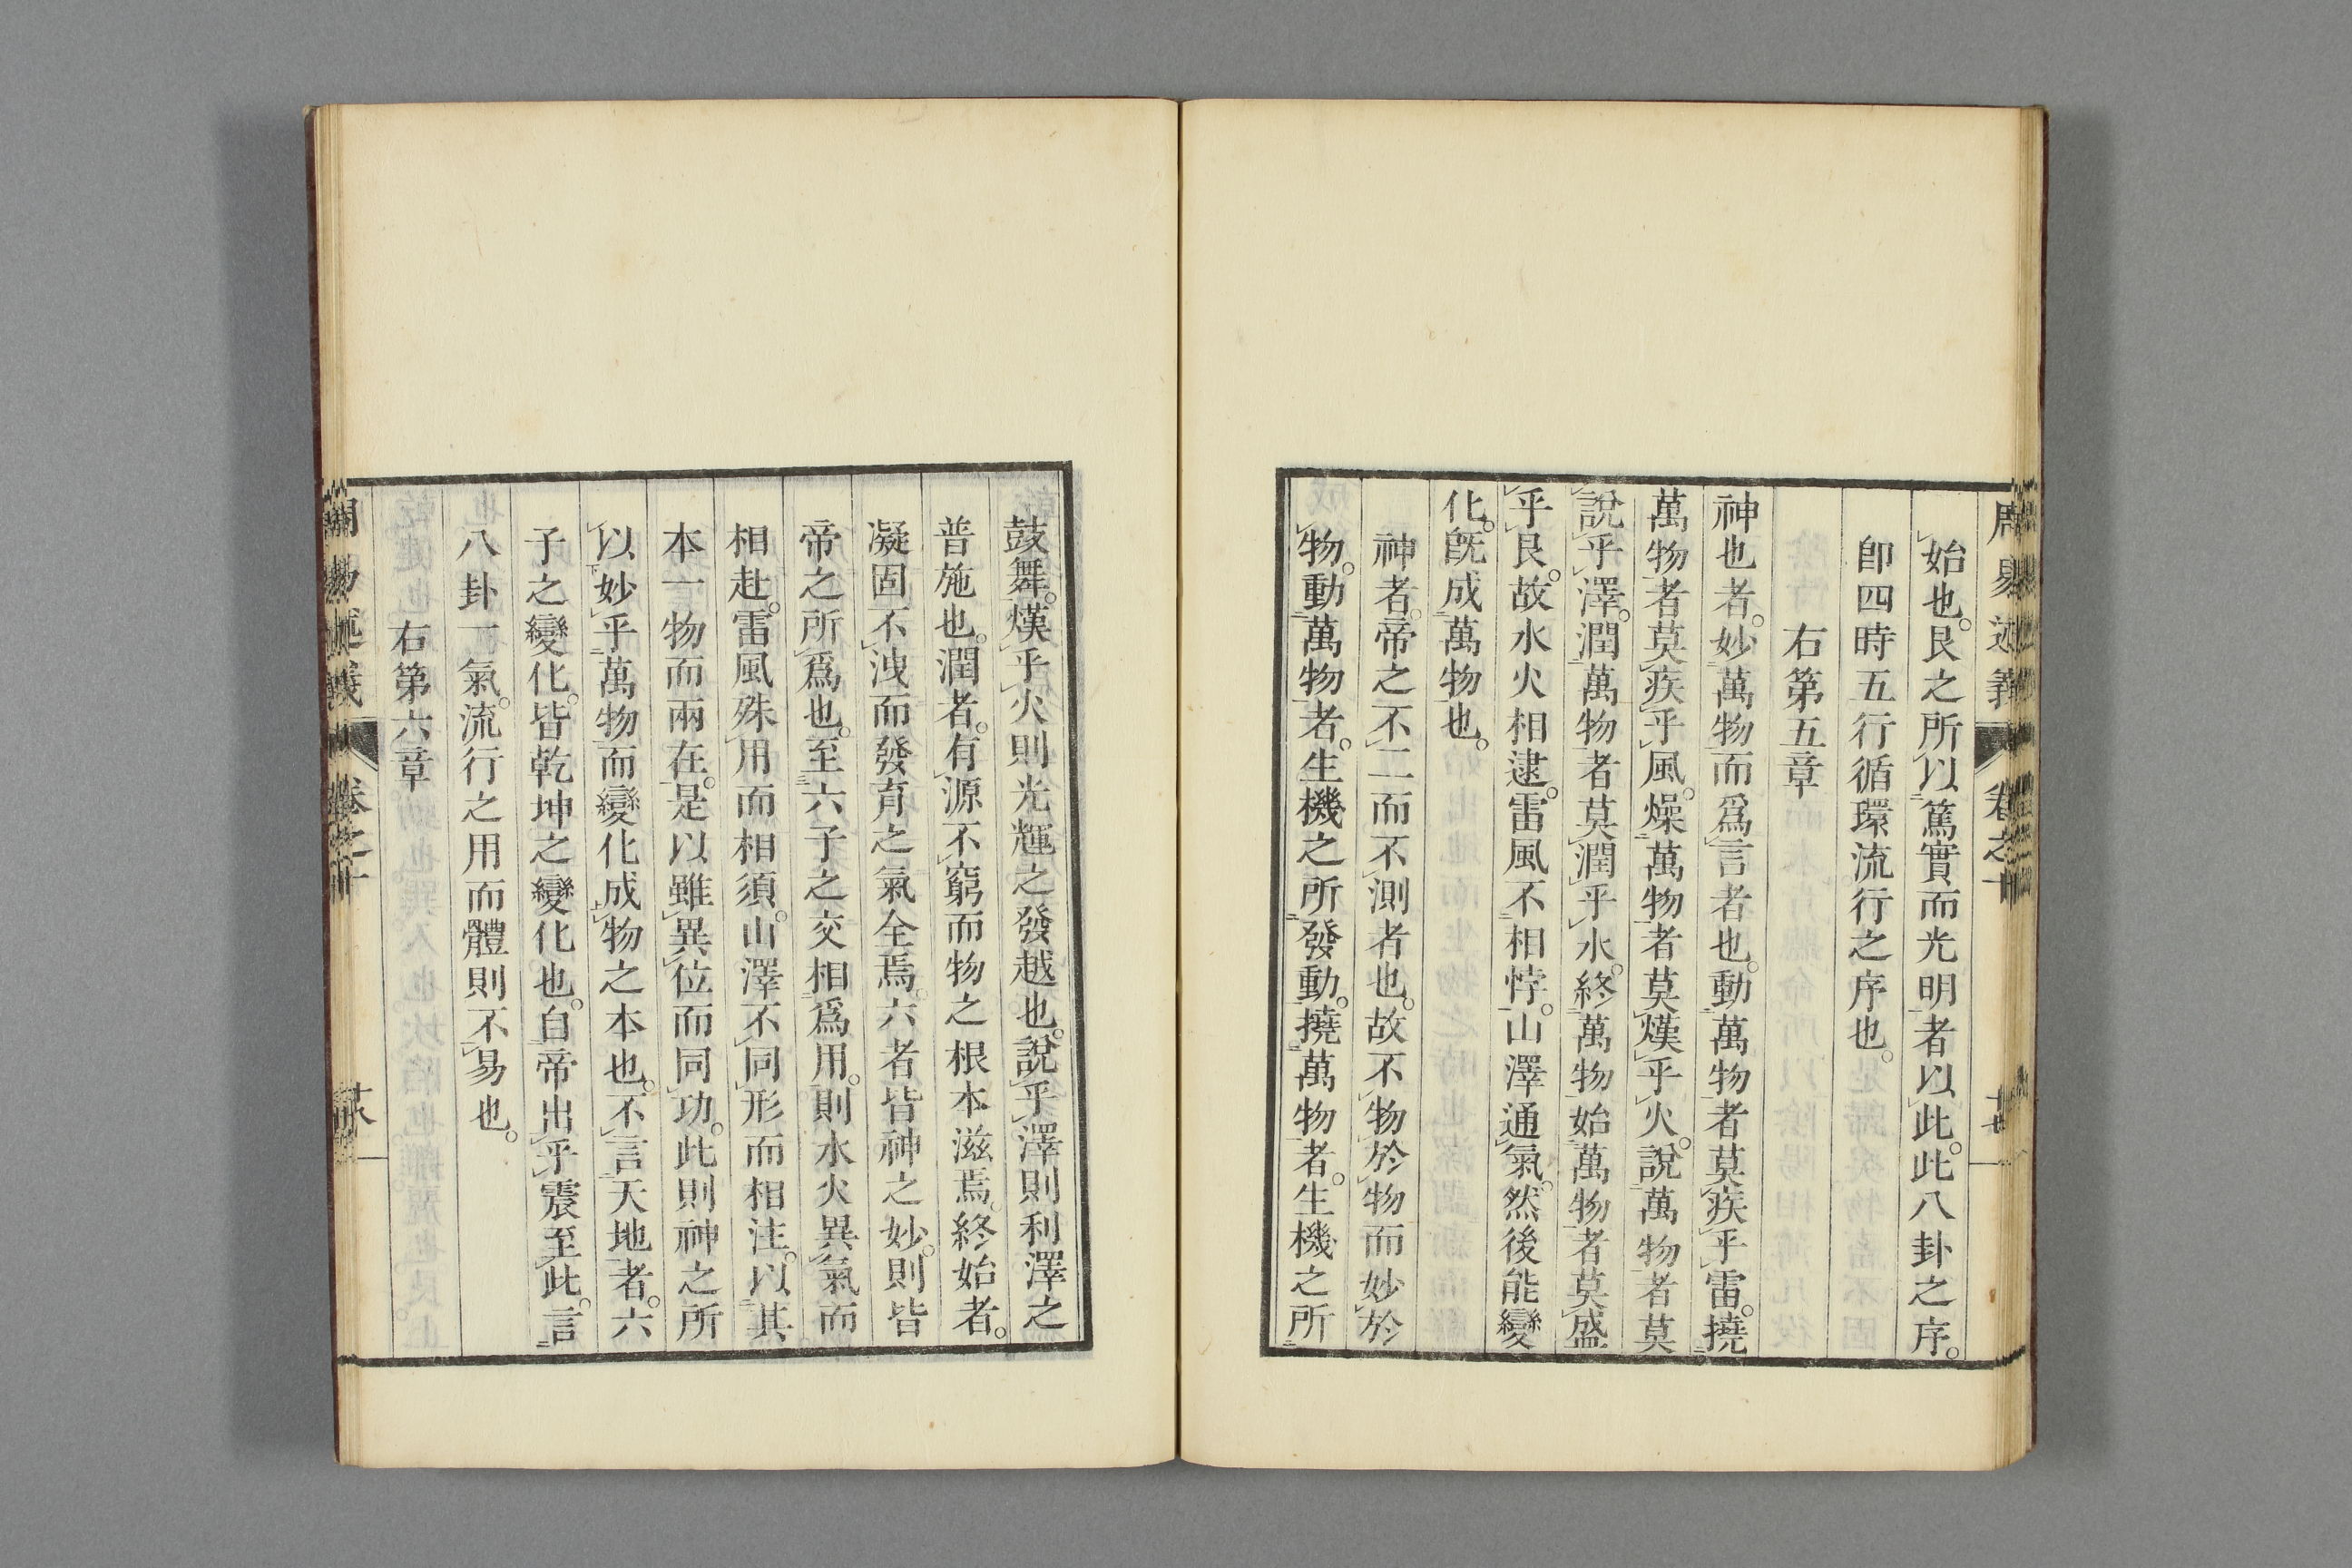 周易述義 卷之十
始也。艮之所以篤實而光明者以此。此八卦之序。
卽四時五行循環流行之序也。
右第五章
神也者。妙萬物而爲言者也。動萬物者莫疾乎雷。撓
萬物者莫疾乎風。燥萬物者莫熯乎火。說萬物者莫
說乎澤。潤萬物者莫潤乎水。終萬物始萬物者莫盛
乎艮。故水火相逮。雷風不相悖。山澤通氣。然後能變
化。旣成萬物也。
神者。帝之不二而不測者也。故不物於物而妙於
物。動萬物者。生機之所發動。撓萬物者。生機之所
鼓舞。熯乎火則光輝之發越也。說乎澤則利澤之
普施也。潤者。有源不窮而物之根本滋焉。終始者。
凝固不洩而發育之氣全焉。六者皆神之妙。則皆
帝之所爲也。至六子之交相爲用。則水火異氣而
相赴。雷風殊用而相須。山澤不同形而相注。以其
本一物而兩在。是以雖異位而同功。此則神之所
以妙乎萬物而變化成物之本也。不言天地者。六
子之變化。皆乾坤之變化也。自帝出乎震至此。言
八卦一氣。流行之用而體則不易也。
右第六章
周易述義 卷之十